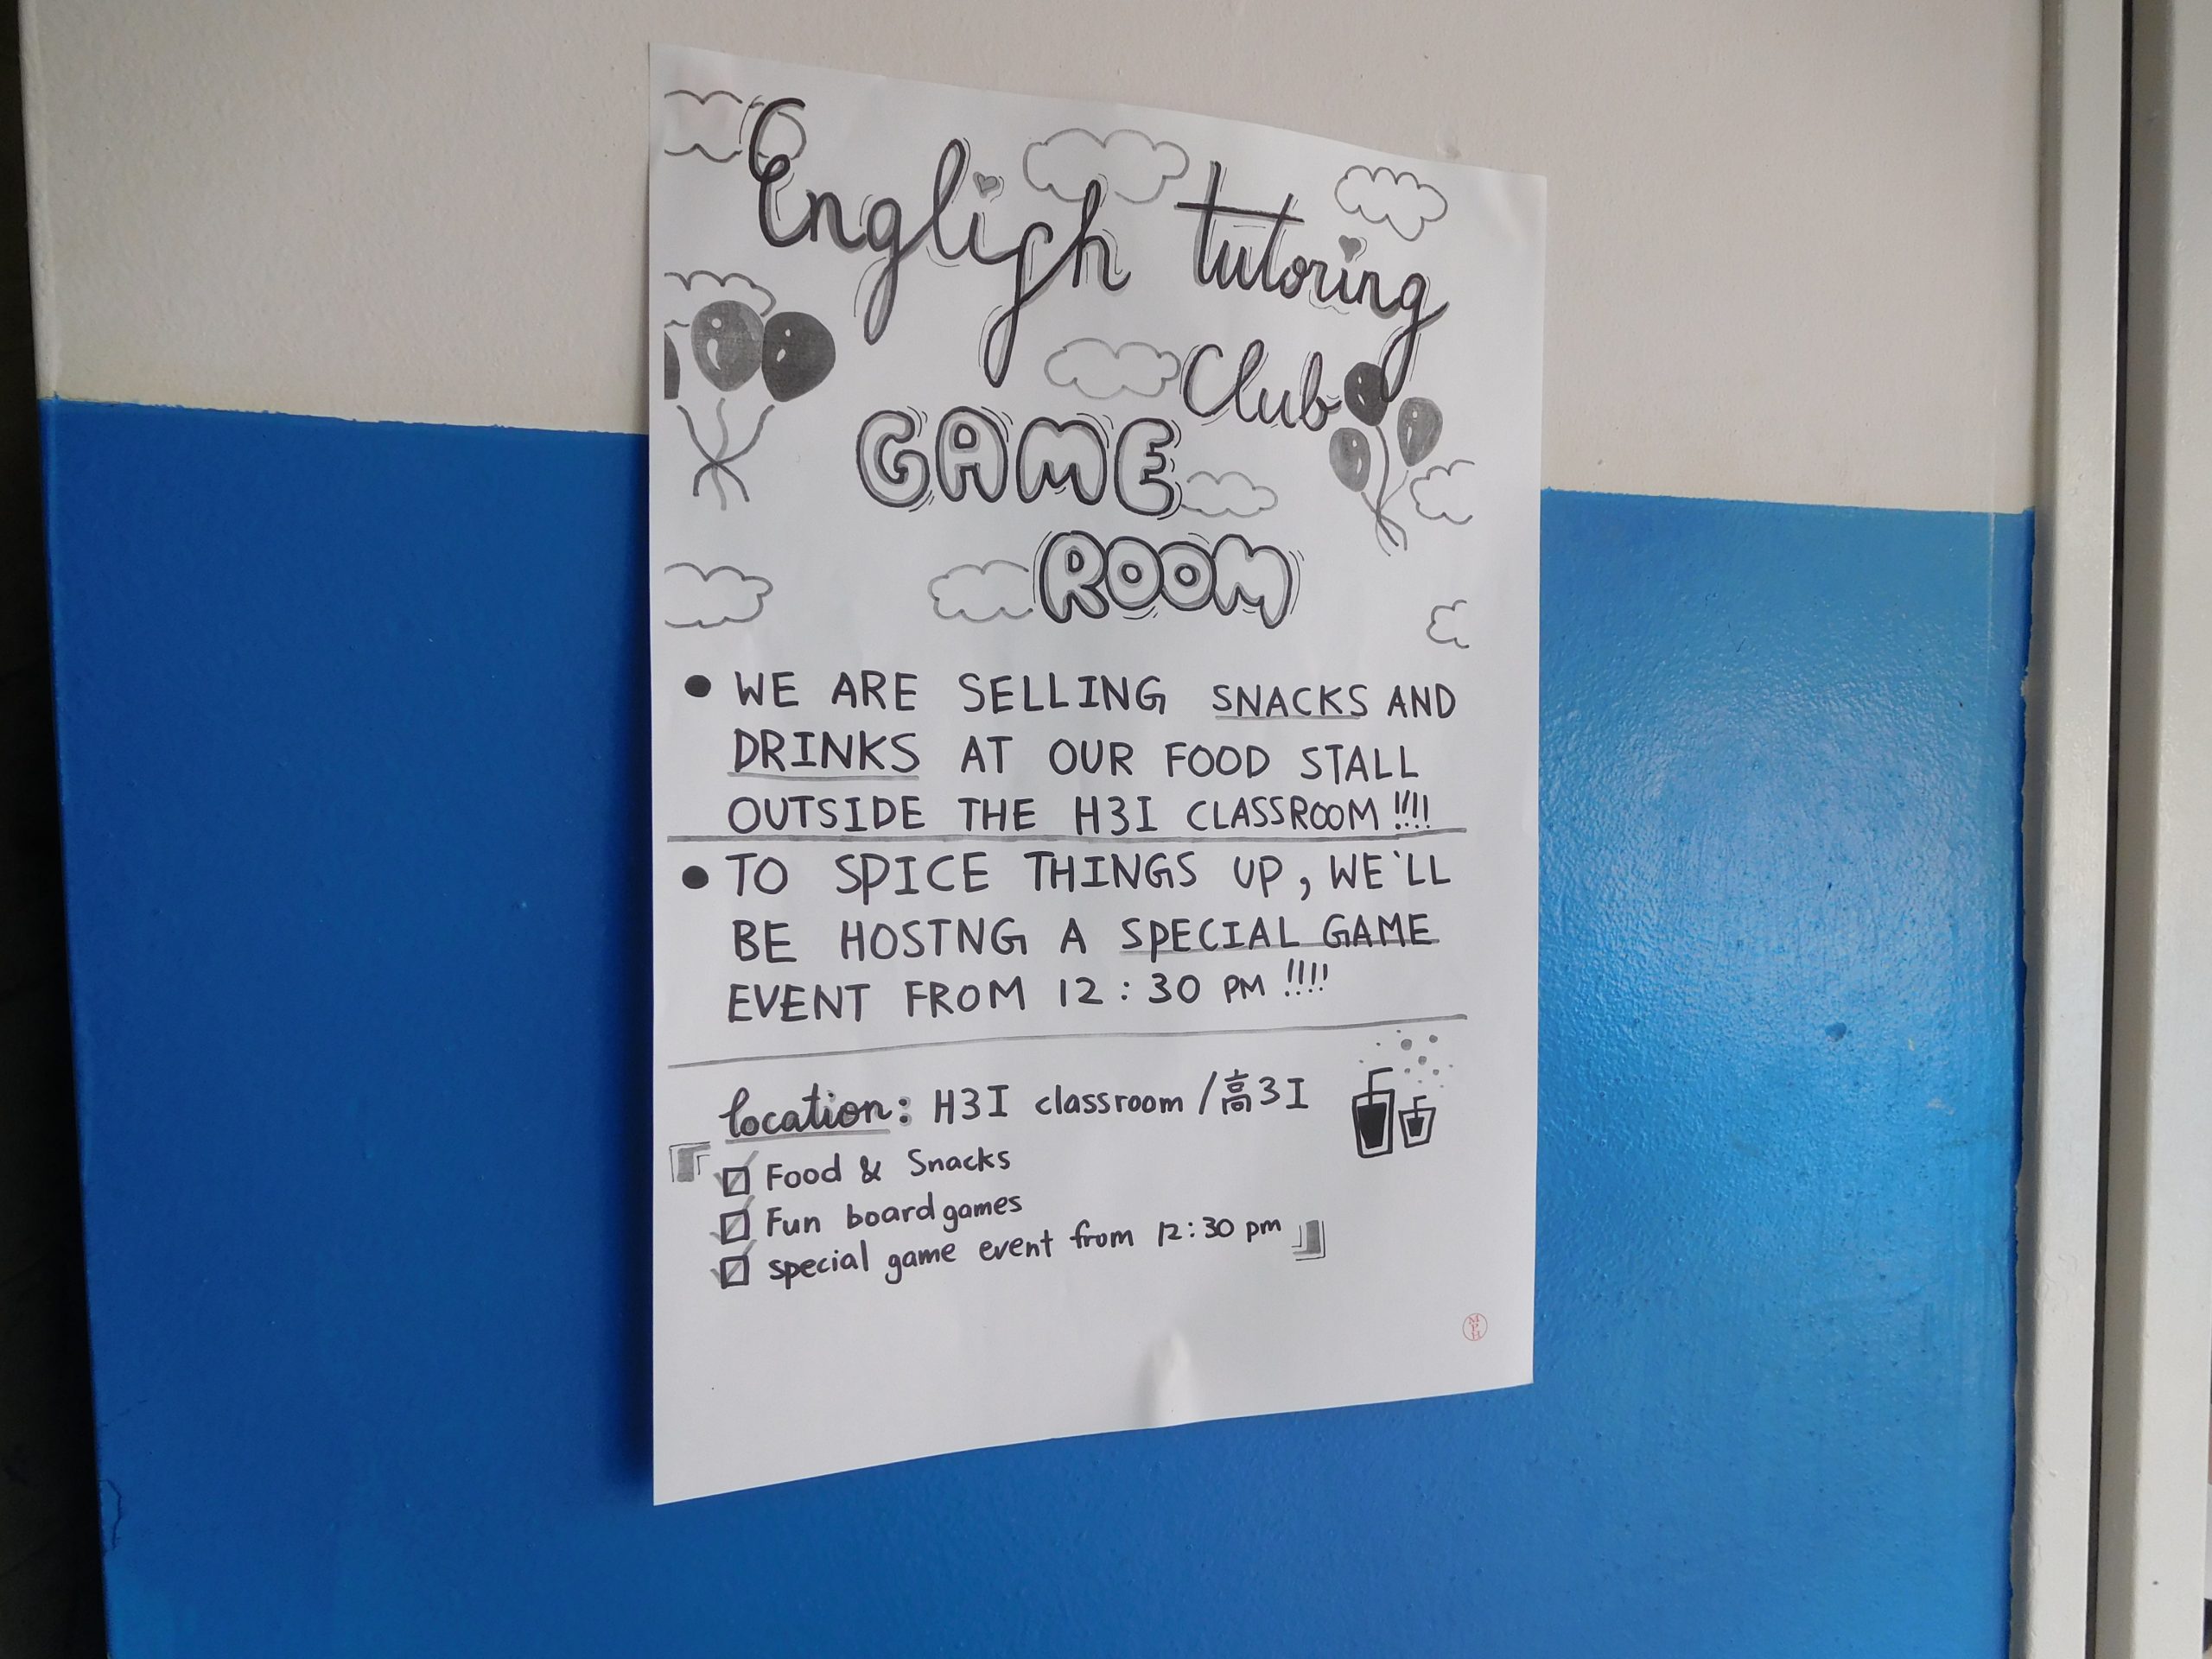 English tutoring
Club
GAME
ROOM
• WE ARE SELLING SNACKS AND
DRINKS AT OUR FOOD STALL
OUTSIDE THE H3I CLASSROOM!!!!
• TO SPICE THINGS UP, WE'LL
BE HOSTNG A SPECIAL GAME
EVENT FROM 12:30 PM !!!!
location: H3I classroom / 高3I
『☑ Food & Snacks
☑ Fun board games
☑ special game event from 12:30 pm 』